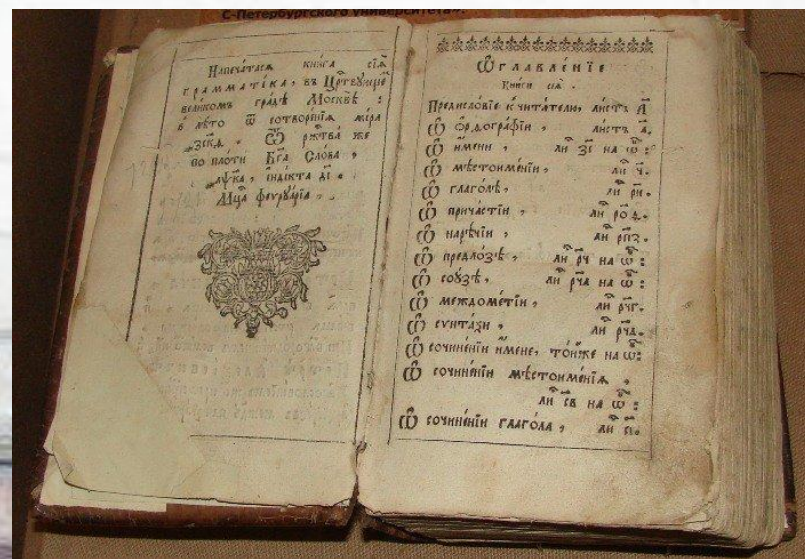 С-Петербургского университета".
Напеча́тасѧ кни́га сїѧ̀
грамма́тїка, въ Црⷭ҇твующемъ
вели́комъ гра́дѣ Москвѣ̀ :
в лѣ́то ѿ сотворе́нїѧ ми́ра
ѿ рж҃тва́ же
во пло́ти Бг҃а Сло́ва ,
і҆ндїкта д҃і .
Мц҃а феѵруа́рїа ,
Ѡ҆главле́нїе
Кни́ги сїѧ̀ .
Предисло́вїе к̾ чита́телю, ли́стъ а҃
Ѡ҆ о҆рѳогра́фїи , ли́стъ д҃.
Ѡ҆ и҆́мени , лиⷭ҇ з҃і на ѡ҆бⷪ҇ :
Ѡ҆ мѣстоиме́нїи , лиⷭ҇ ч҃.
Ѡ҆ глаго́лѣ , лиⷭ҇ р҃и.
Ѡ҆ прича́стїи , лиⷭ҇ ро҃д.
Ѡ҆ нарѣ́чїи , лиⷭ҇ рп҃з.
Ѡ҆ предло́зѣ , лиⷭ҇ рч҃ на ѡ҆бⷪ҇ :
Ѡ҆ сою́зѣ , лиⷭ҇ рч҃а на ѡ҆бⷪ҇ :
Ѡ҆ междоме́тїи , лиⷭ҇ рч҃г.
Ѡ҆ сѵнта́ѯи , лиⷭ҇ рч҃д.
Ѡ҆ сочине́нїи и҆́мене, то́йже на ѡ҆бⷪ҇ :
Ѡ҆ сочине́нїи мѣстоиме́нїѧ ,
лиⷭ҇ с҃в на ѡ҆бⷪ҇ :
Ѡ҆ сочине́нїи глаго́ла , лиⷭ҇ с҃і.